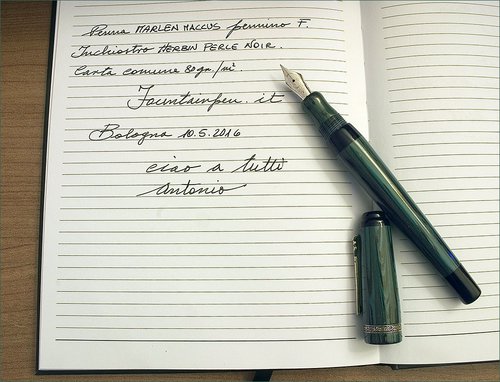 Penna MARLEN MACCUS pennino F.
Inchiostro HERBIN PERLE NOIR.
Carta comune 80 gr./m².
Fountainpen.it
Bologna 10.5.2016
ciao a tutti
Antonio